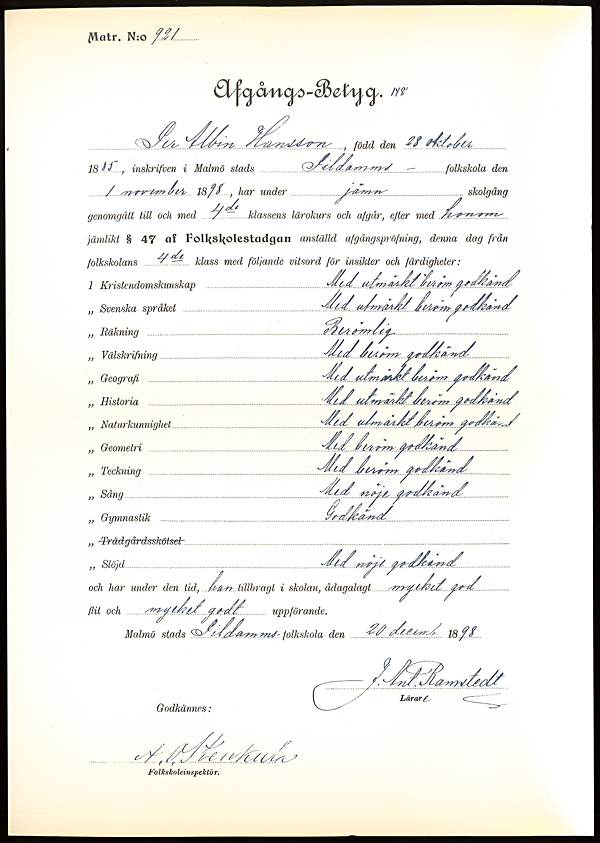 Matr. N:o 921
Afgångs-Betyg. 148
Per Albin Hansson, född den 28 oktober
1885, inskrifven i Malmö stads Pildamms – folkskola den
1 november 1898, har under jämn skolgång
genomgått till och med 4de klassens lärokurs och afgår, efter med honom
jämlikt § 47 af Folkskolestadgan anställd afgångspröfning, denna dag från
folkskolans 4de klass med följande vitsord för insikter och färdigheter:
I Kristendomskunskap Med utmärkt beröm godkänd
„ Svenska språket Med utmärkt beröm godkänd
„ Räkning Berömlig
„ Välskrifning Med beröm godkänd
„ Geografi Med utmärkt beröm godkänd
„ Historia Med utmärkt beröm godkänd
„ Naturkunnighet Med utmärkt beröm godkänd
„ Geometri Med beröm godkänd
„ Teckning Med beröm godkänd
„ Sång Med nöje godkänd
„ Gymnastik Godkänd
„ Trädgårdsskötsel
„ Slöjd Med nöje godkänd
och har under den tid, han tillbragt i skolan, ådagalagt mycket god
flit och mycket godt uppförande.
Malmö stads Pildamms-folkskola den 20 decemb. 1898
J. Ant. Ramstedt
Lärare
Godkännes:
Folkskoleinspektör.